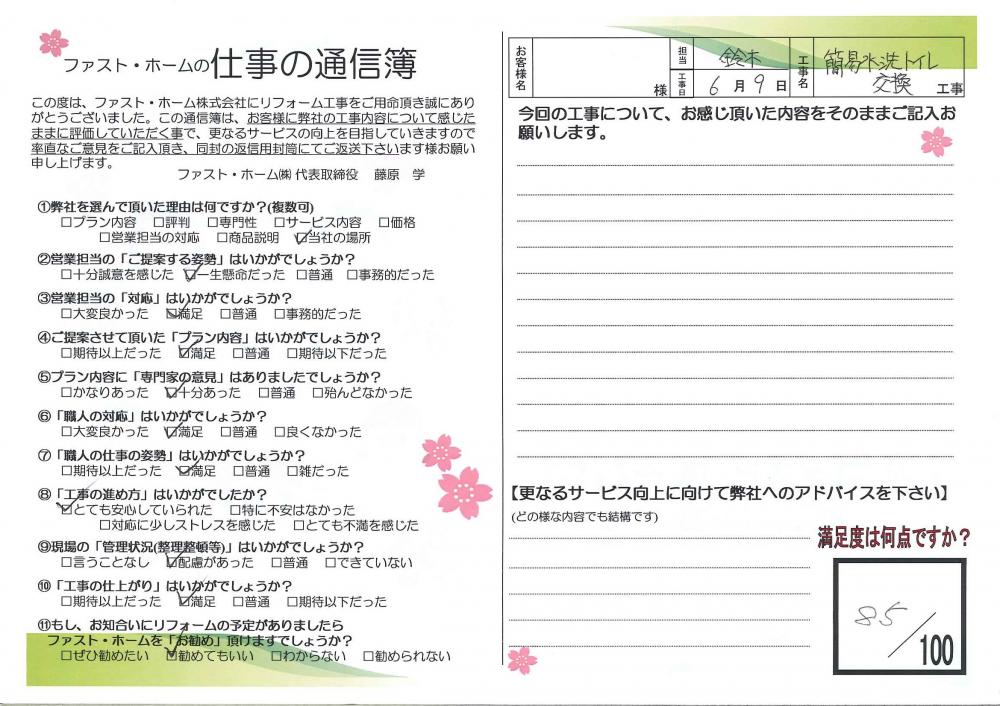 ファスト・ホームの仕事の通信簿
この度は、ファスト・ホーム株式会社にリフォーム工事をご用命頂き誠にあり
がとうございました。この通信簿は、お客様に弊社の工事内容について感じた
ままに評価していただく事で、更なるサービスの向上を目指していきますので
率直なご意見をご記入頂き、同封の返信用封筒にてご返送下さいます様お願い
申し上げます。
ファスト・ホーム㈱ 代表取締役 藤原 学
①弊社を選んで頂いた理由は何ですか？(複数可)
□プラン内容 □評判 □専門性 □サービス内容 □価格
□営業担当の対応 □商品説明 ☑当社の場所
②営業担当の「ご提案する姿勢」はいかがでしょうか？
□十分誠意を感じた ☑一生懸命だった □普通 □事務的だった
③営業担当の「対応」はいかがでしょうか？
□大変良かった ☑満足 □普通 □事務的だった
④ご提案させて頂いた「プラン内容」はいかがでしょうか？
□期待以上だった ☑満足 □普通 □期待以下だった
⑤プラン内容に「専門家の意見」はありましたでしょうか？
□かなりあった ☑十分あった □普通 □殆んどなかった
⑥「職人の対応」はいかがでしょうか？
□大変良かった ☑満足 □普通 □良くなかった
⑦「職人の仕事の姿勢」はいかがでしょうか？
□期待以上だった ☑満足 □普通 □雑だった
⑧「工事の進め方」はいかがでしたか？
☑とても安心していられた □特に不安はなかった
□対応に少しストレスを感じた □とても不満を感じた
⑨現場の「管理状況(整理整頓等)」はいかがでしょうか？
□言うことなし ☑配慮があった □普通 □できていない
⑩「工事の仕上がり」はいかがでしょうか？
□期待以上だった ☑満足 □普通 □期待以下だった
⑪もし、お知合いにリフォームの予定がありましたら
ファスト・ホームを「お勧め」頂けますでしょうか？
□ぜひ勧めたい ☑勧めてもいい □わからない □勧められない
お客様名 様 担当 鈴木
工事日 6月9日
工事名 簡易水洗トイレ
交換 工事
今回の工事について、お感じ頂いた内容をそのままご記入お
願いします。
【更なるサービス向上に向けて弊社へのアドバイスを下さい】
(どの様な内容でも結構です)
満足度は何点ですか？
85/100